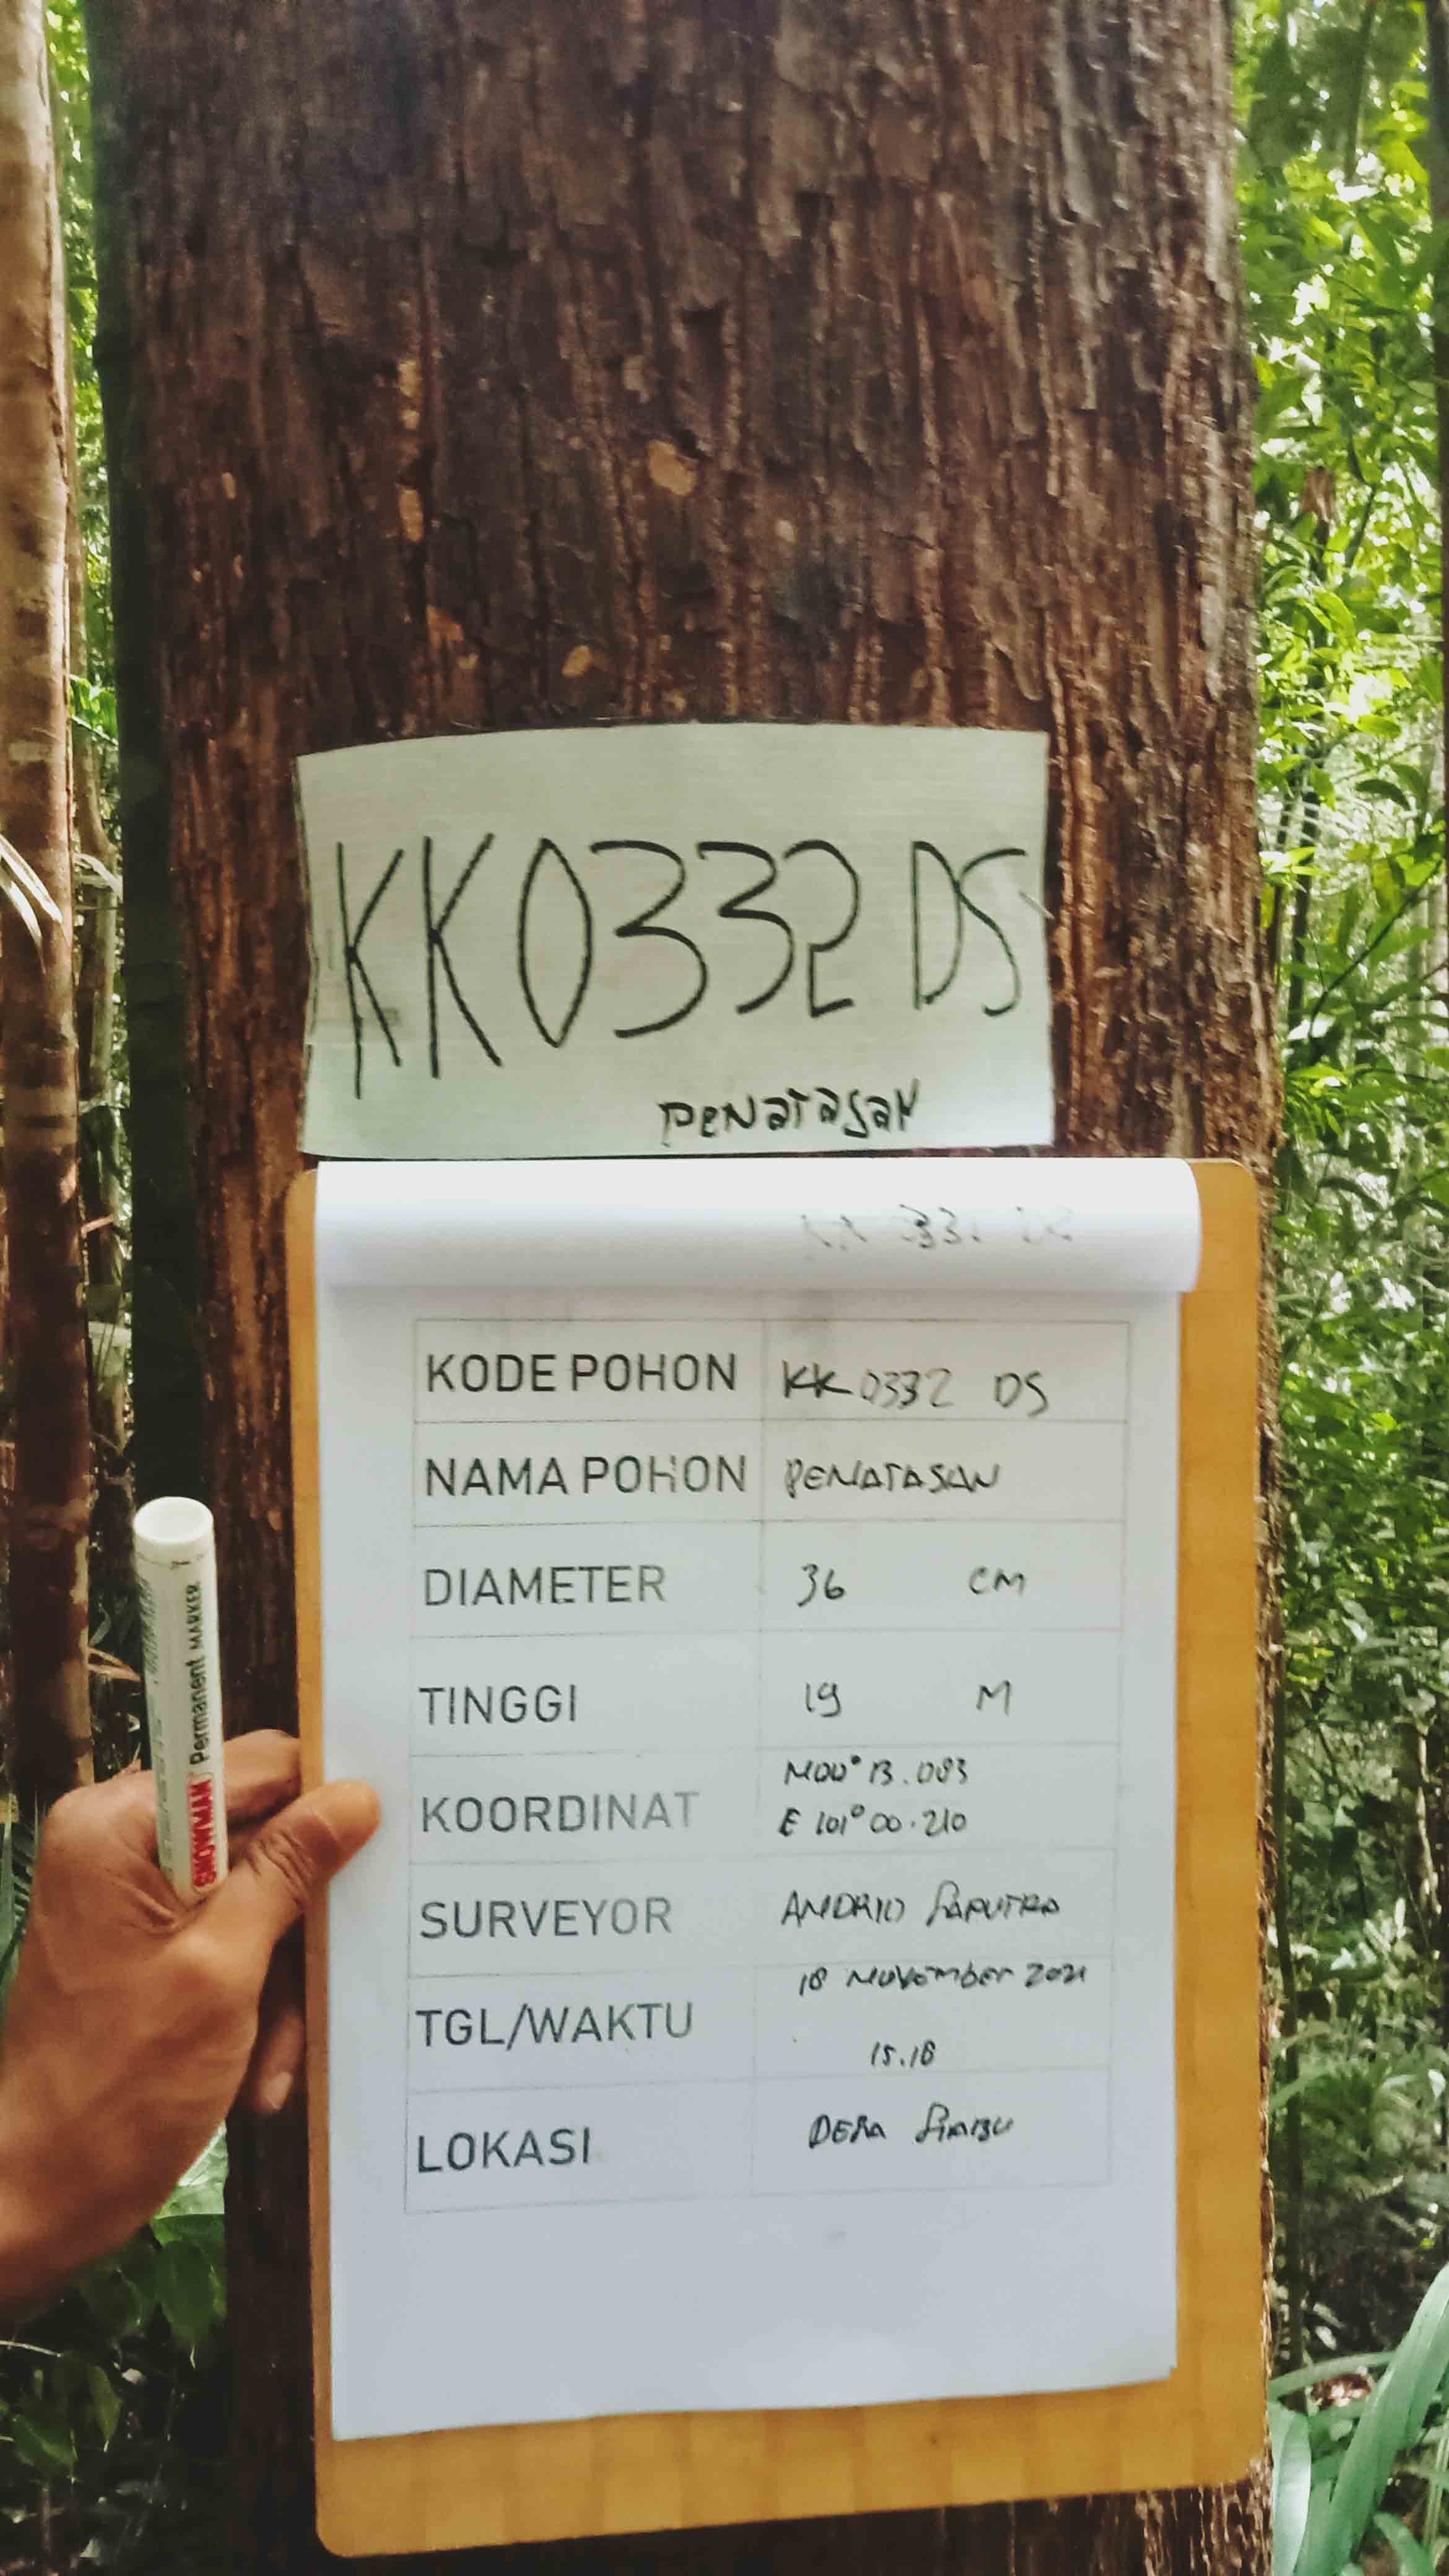 KK0332 DS
PENATASAN
KODE POHON KK 0332 DS
NAMA POHON PENATASAN
DIAMETER 36 CM
TINGGI 19 M
KOORDINAT N00° 13.083
E 101° 00.210
SURVEYOR ANDRIO SAPUTRA
TGL/WAKTU 18 November 2021
15.18
LOKASI DESA SIABU
SNOWMAN Permanent MARKER